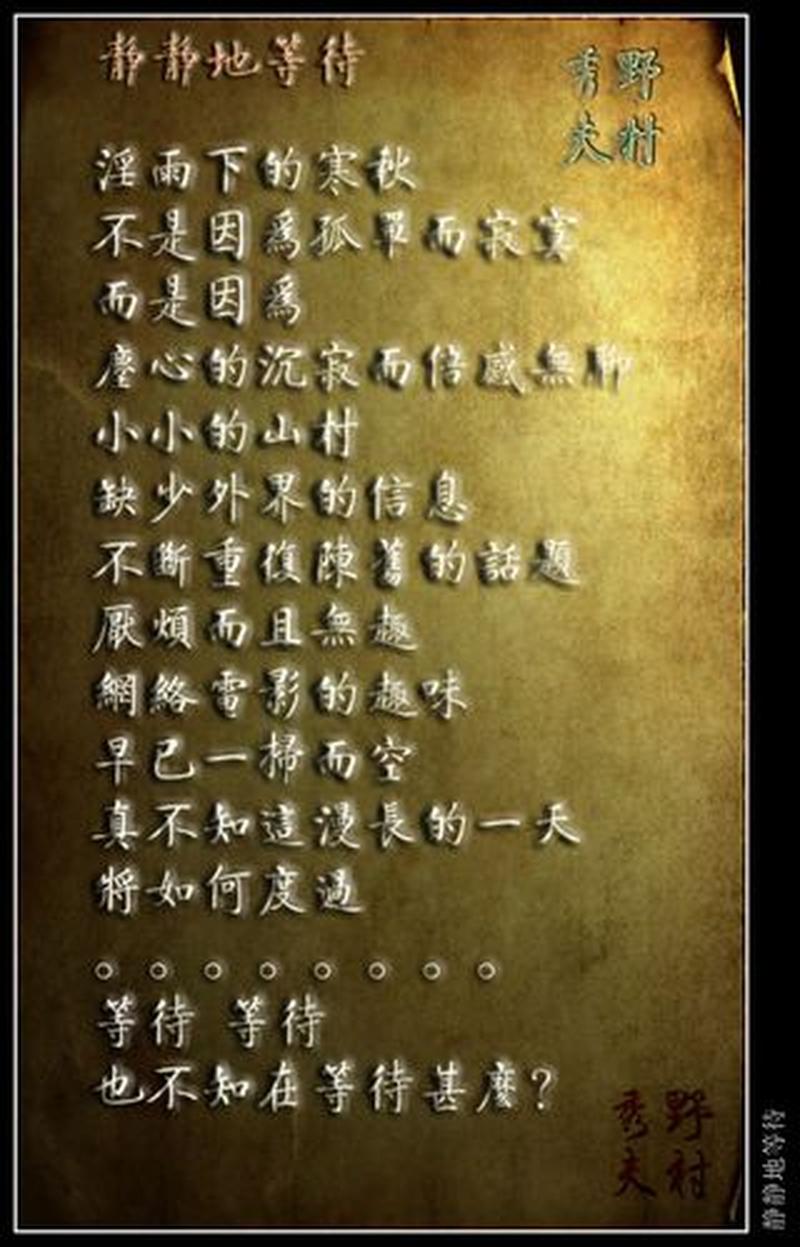 靜靜地等待
野村
秀夫
淫雨下的寒秋
不是因為孤單而寂寞
而是因為
塵心的沉寂而倍感無聊
小小的山村
缺少外界的信息
不斷重復陳舊的話題
厭煩而且無趣
網絡電影的趣味
早已一掃而空
真不知這漫長的一天
將如何度過
。。。。。。。。
等待 等待
也不知在等待甚麼？
野村
秀夫
靜靜地等待